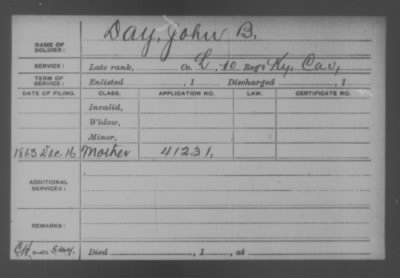 Day, John B.
NAME OF SOLDIER:
SERVICE: Late rank, Co. L. 10 Reg't Ky. Cav.,
TERM OF SERVICE: Enlisted , 1 Discharged , 1
DATE OF FILING. CLASS. APPLICATION NO. LAW. CERTIFICATE NO.
Invalid,
Widow,
Minor,
1863 Dec 16 Mother 41231,
ADDITIONAL SERVICES:
REMARKS:
Died , 1 , at